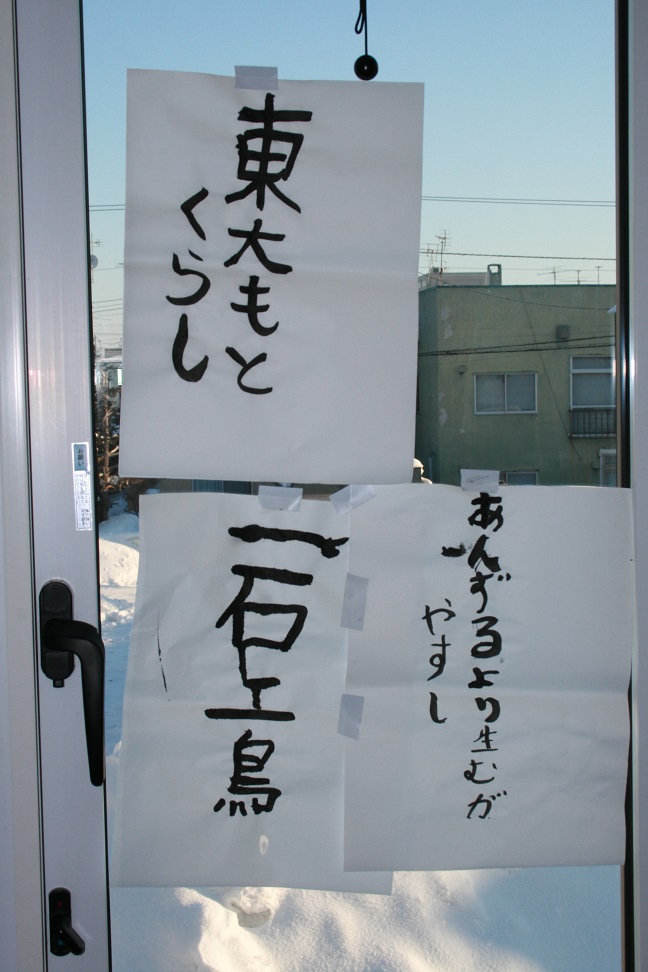 東大もと
くらし
一石二鳥
あんずるより生むが
やすし
お願い